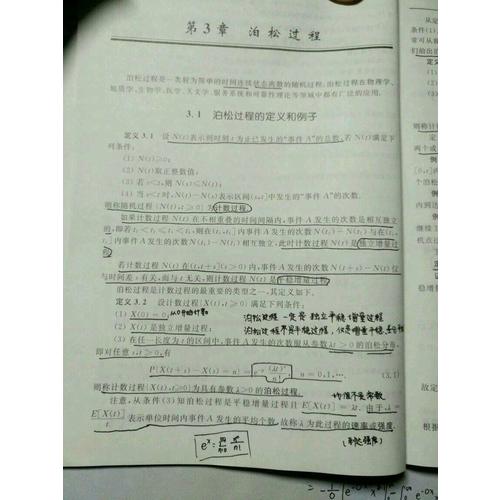 第 3 章 泊松过程
泊松过程是一类较为简单的时间连续状态离散的随机过程,泊松过程在物理学、
地质学、生物学、医学、天文学、服务系统和可靠性理论等领域中都有广泛的应用.
3.1 泊松过程的定义和例子
定义 3.1 设 N(t)表示到时刻 t 为止已发生的“事件 A”的总数,若 N(t)满足下
列条件:
(1) N(t)≥0;
(2) N(t)取正整数值;
(3) 若 s<t,则 N(s)≤N(t);
(4) 当 s<t 时,N(t)−N(s)表示区间(s,t]中发生的“事件 A”的次数.
则称随机过程{N(t),t≥0}为计数过程.
如果计数过程 N(t)在不相重叠的时间间隔内,事件 A 发生的次数是相互独立
的,即若 t₁<t₂≤t₃<t₄,则在(t₁,t₂]内事件 A 发生的次数 N(t₂)−N(t₁)与在(t₃,
t₄]内事件 A 发生的次数 N(t₄)−N(t₃)相互独立,此时计数过程 N(t)是独立增量过
程.
若计数过程 N(t)在(t,t+s](s>0)内,事件 A 发生的次数 N(t+s)−N(t)仅
与时间差 s 有关,而与 t 无关,则计数过程 N(t)是平稳增量过程.
泊松过程是计数过程的最重要的类型之一,其定义如下.
定义 3.2 设计数过程{X(t),t≥0}满足下列条件:
(1) X(0)=0; 从0开始计数 泊松过程一定是独立平稳增量过程
(2) X(t)是独立增量过程; 泊松过程不是平稳过程,仅是增量平稳
(3) 在任一长度为 t 的区间中,事件 A 发生的次数服从参数 λt>0 的泊松分布,
即对任意 s,t≥0,有
P{X(t+s)−X(s)=n}=e^{−λt} (λt)ⁿ/n!, n=0,1,…, (3.1)
则称计数过程{X(t),t≥0}为具有参数 λ>0 的泊松过程.
均值不是常数
注意,从条件(3)知泊松过程是平稳增量过程且 E[X(t)]=λt. 由于,λ=
E[X(t)]/t 表示单位时间内事件 A 发生的平均个数,故称 λ 为此过程的速率或强度.
(到达强度)